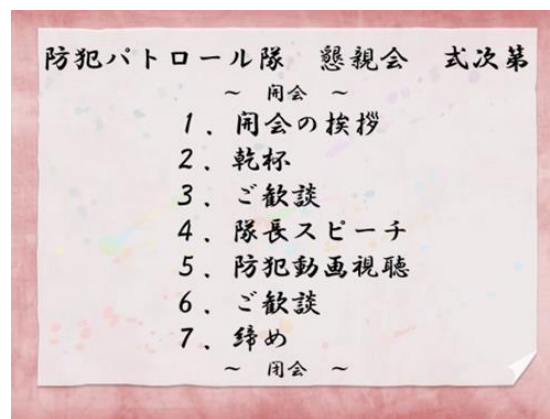 防犯パトロール隊　懇親会　式次第
～　開会　～
1、開会の挨拶
2、乾杯
3、ご歓談
4、隊長スピーチ
5、防犯動画視聴
6、ご歓談
7、締め
～　閉会　～